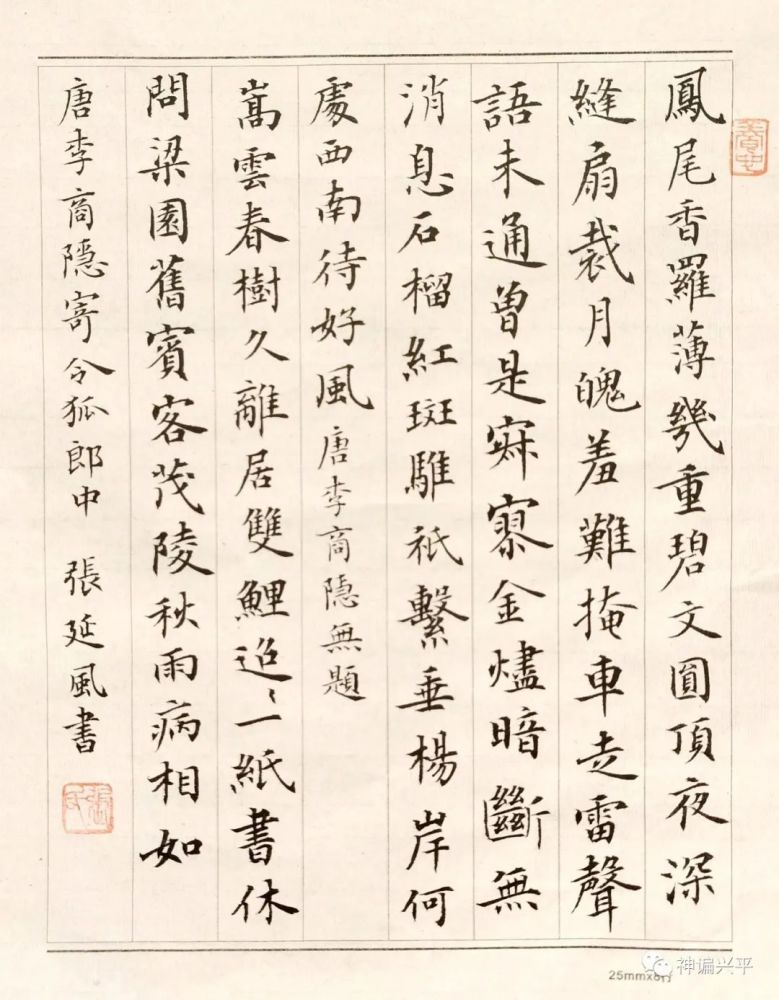 鳳尾香羅薄幾重碧文圓頂夜深
縫扇裁月魄羞難掩車走雷聲
語未通曾是寂寥金燼暗斷無
消息石榴紅斑騅祇繫垂楊岸何
處西南待好風唐李商隐無題
嵩雲春樹久離居雙鯉迢〻一紙書休
問梁園舊賓客茂陵秋雨病相如
唐李商隐寄令狐郎中 張延風書
神谝兴平